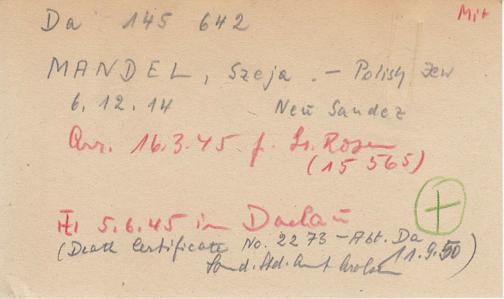 Da 145 642
Mit
MANDEL, Szeja. - Polish Jew
6.12.14 Neu Sandez
Arr. 16.3.45 f. Gr. Rosen
(15 565)
5.6.45 in Dachau
(Death Certificate No. 2273 - Abt. Da
Sond. Std. Amt Arolsen 11.9.50)